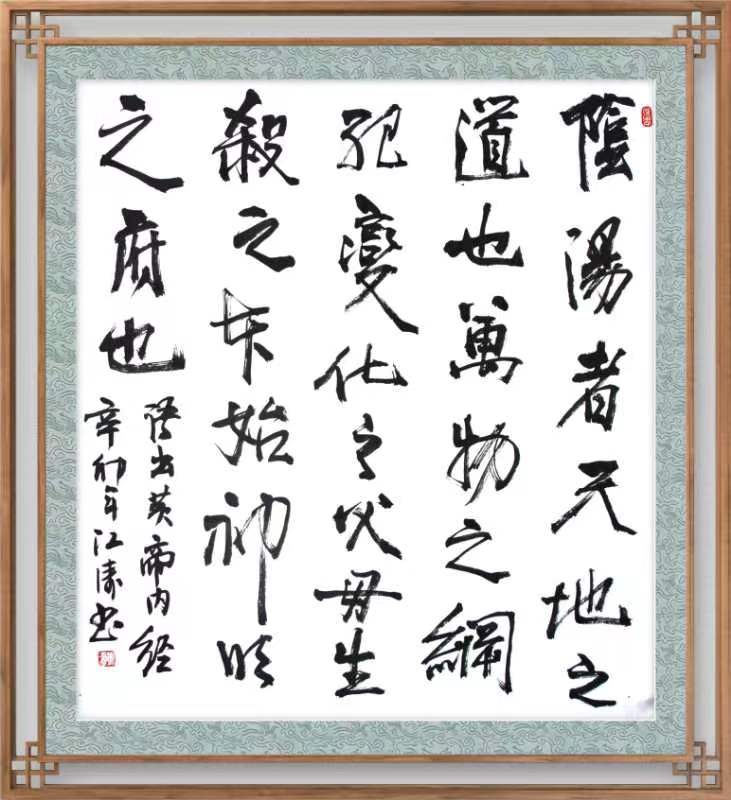 陰陽者天地之
道也萬物之綱
紀變化之父母生
殺之本始神明
之府也
语出黄帝内经
辛卯年江涛书